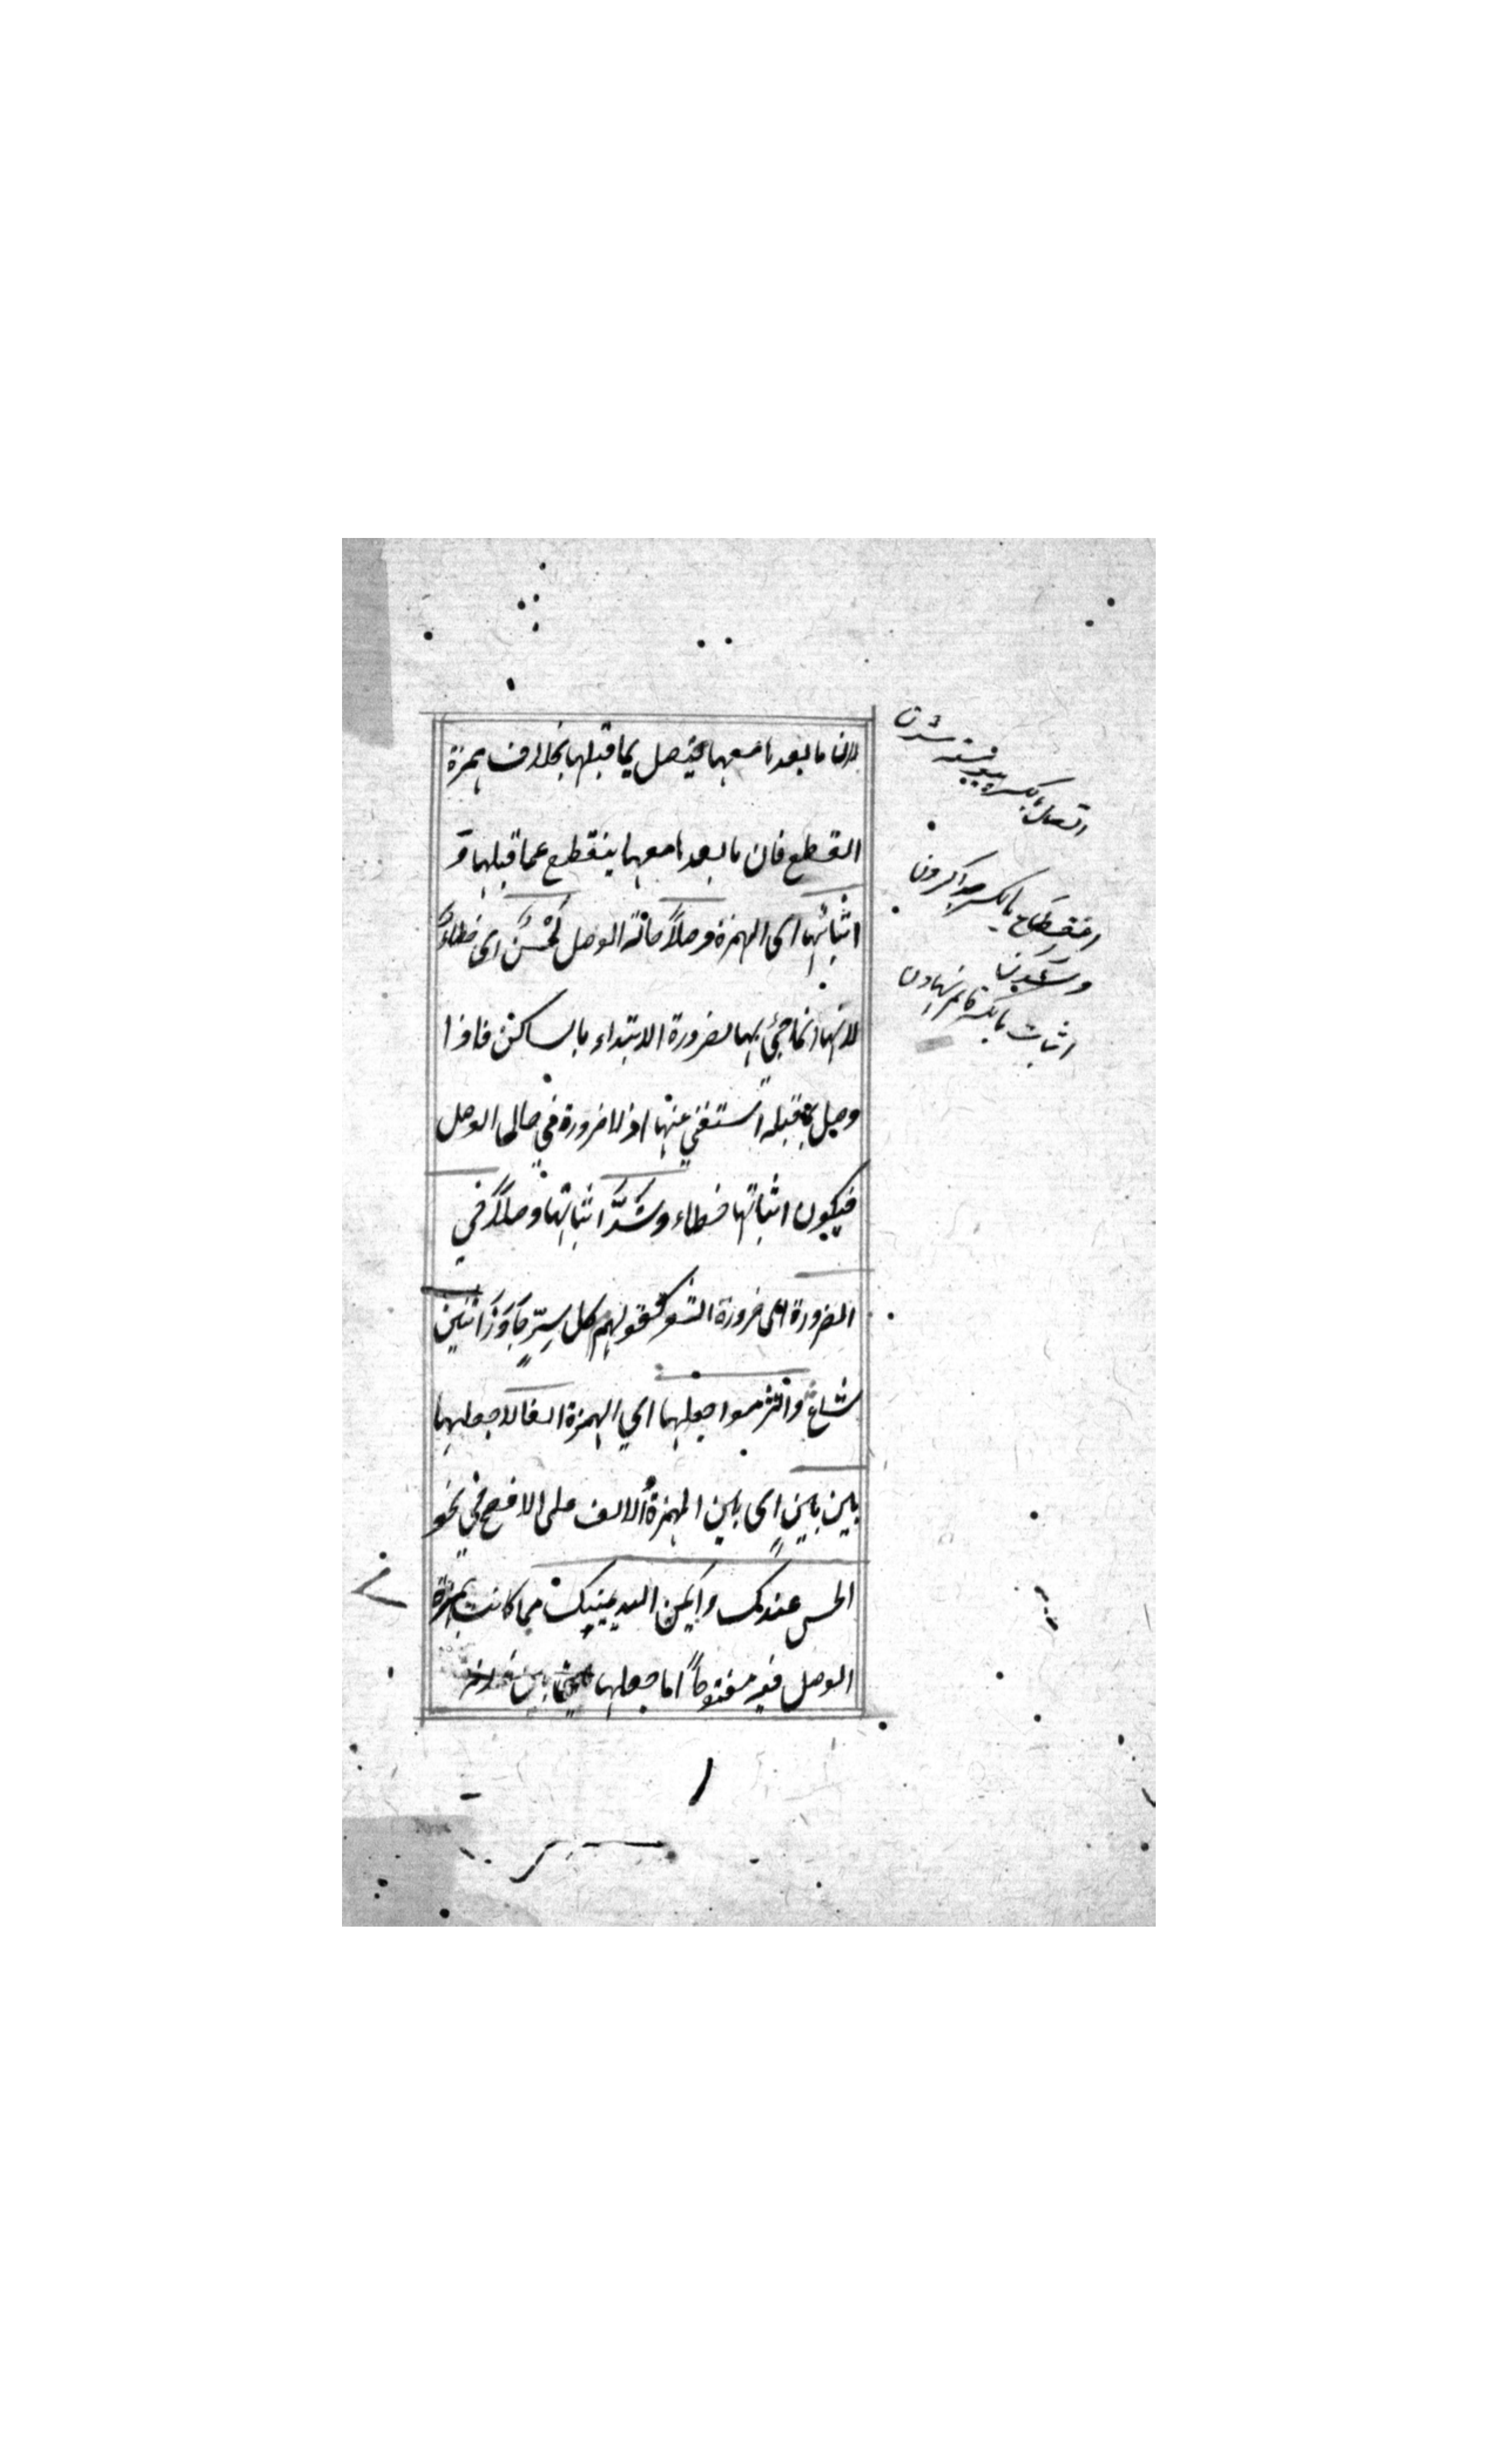 لان ما بعدها معها يتصل بما قبلها بخلاف همزة
القطع فان ما بعدها معها ينقطع عما قبلها و
اثباتها اى الهمزة وصلاً حالة الوصل لحْنٌ اى خطاءٌ
لانها انما جئ بها لضرورة الابتداء بالساكن فاذا
وصل بما قبله استغني عنها اذ لا ضرورة في حالة الوصل
فيكون اثباتها خطاء وشَذَّ اثباتها وصلاً في
الضرورة اى ضرورة الشعر كقولهم كل سِرٍّ جَاوَزَ اثنَين
شاع والتزموا جعلها اي الهمزة الفا لا جعلها
بين بين اى بين الهمزة والالف على الافصح في نحو
الحسن عندك وايمن الله يمينك مما كانت همزة
الوصل فيه مفتوحاً اما جعلها
اتصال بالكسر پيوسته شدن
انقطاع بالكسر جدا كردن
اثبات بالكسر قائم نهادن